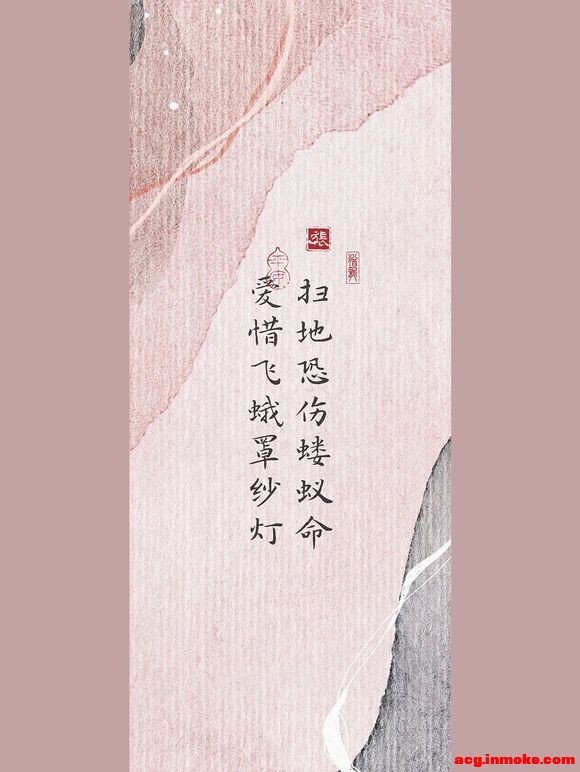 張
扫地恐伤蝼蚁命
爱惜飞蛾罩纱灯
acg.inmoke.com